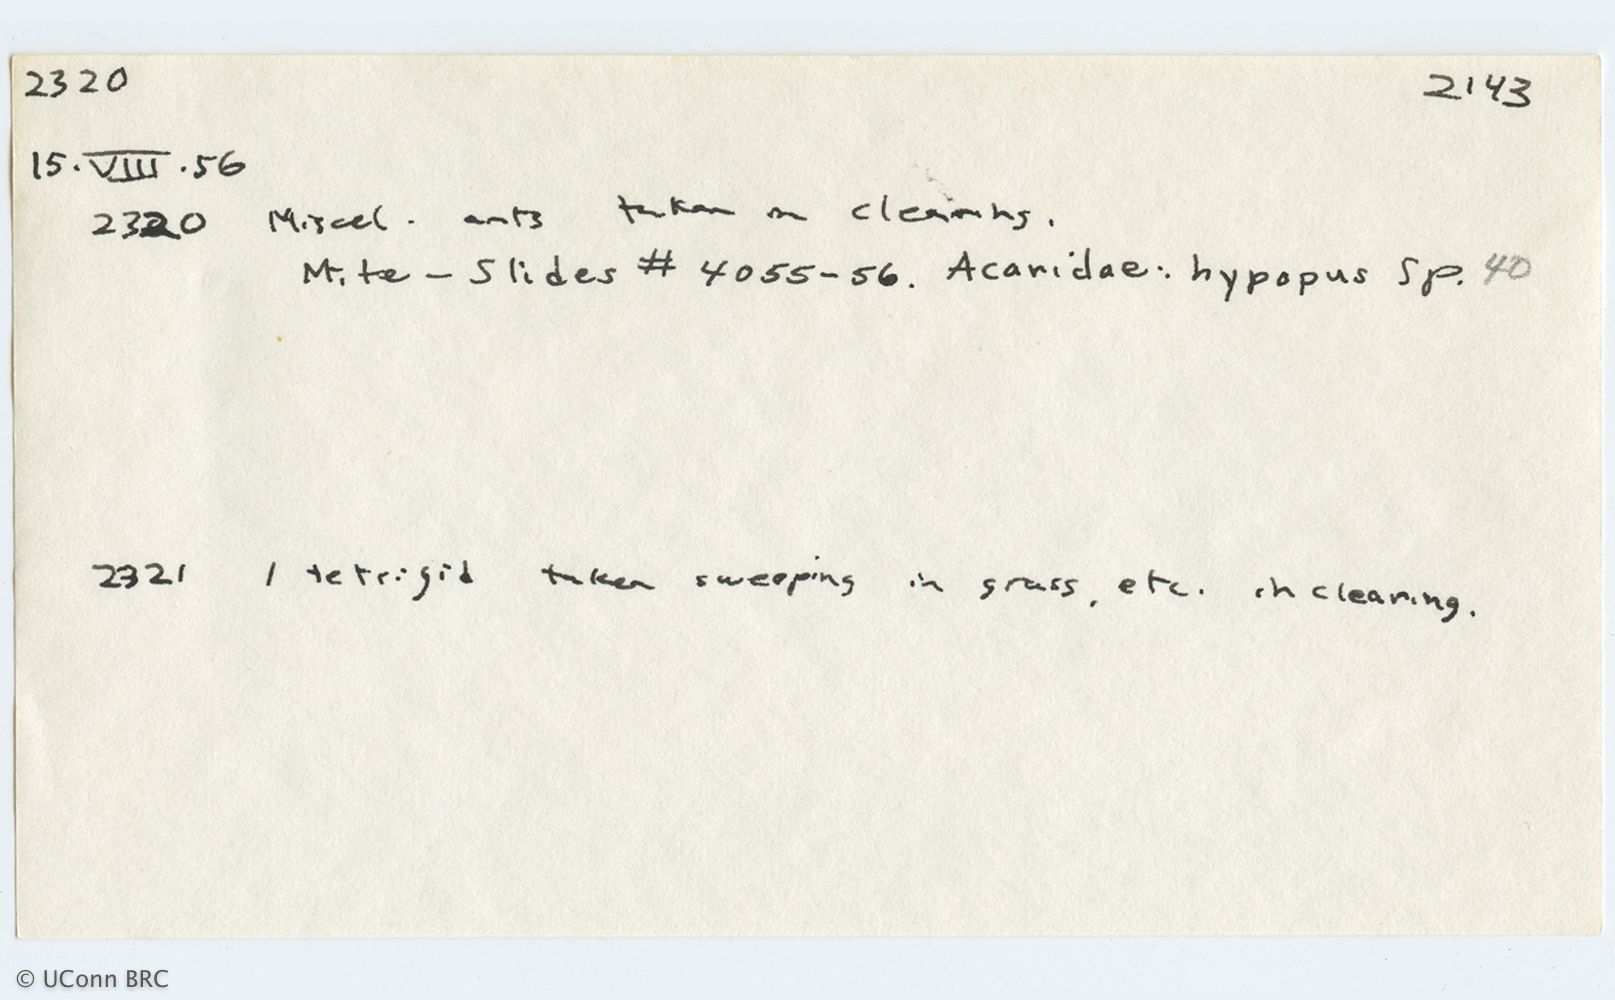 2320 2143
15.VIII.56
2320 Miscel. ants taken in clearing.
Mite - Slides # 4055-56. Acaridae: hypopus Sp. 40
2321 1 tetrigid taken sweeping in grass, etc. in clearing.
© UConn BRC